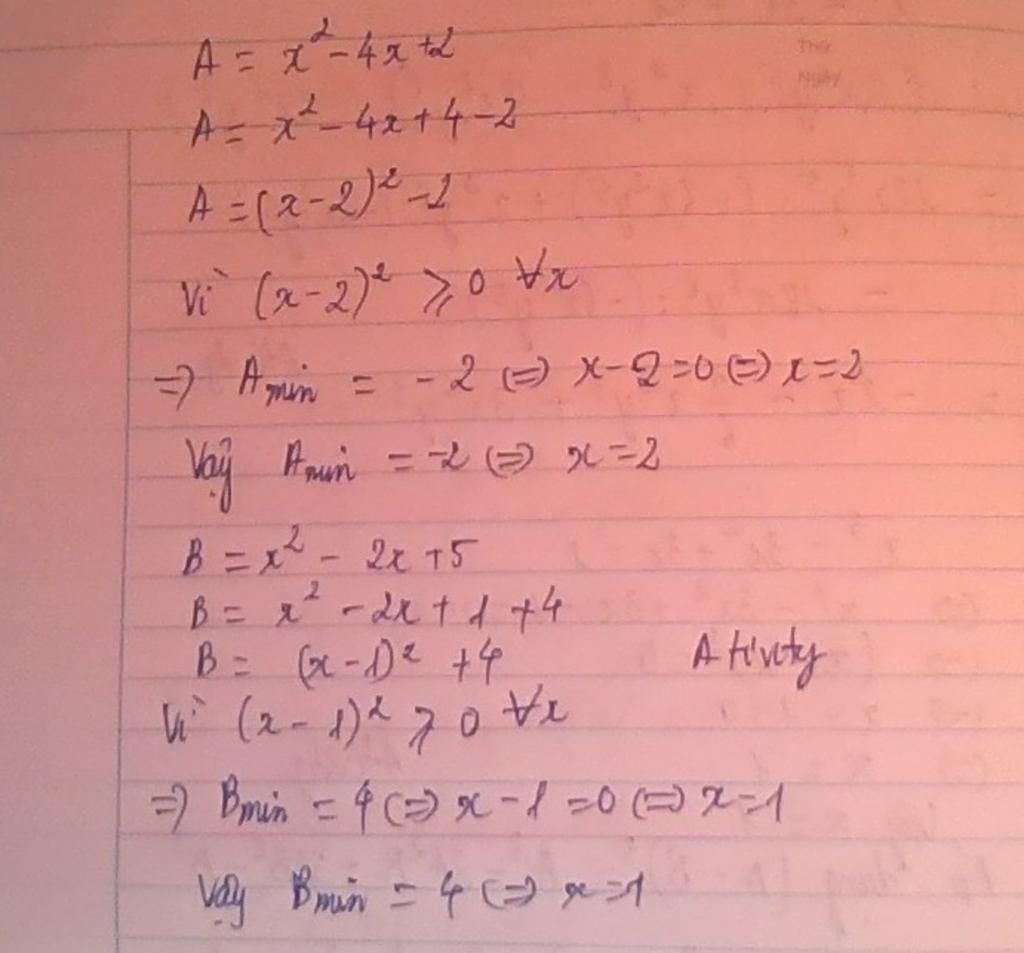 Thứ
Ngày
A = x² - 4x + 2
A = x² - 4x + 4 - 2
A = (x - 2)² - 2
Vì (x - 2)² ⩾ 0 ∀x
=> A min = - 2 <=> x - 2 = 0 <=> x = 2
Vậy A min = -2 <=> x = 2
B = x² - 2x + 5
B = x² - 2x + 1 + 4
B = (x - 1)² + 4
Ativity
Vì (x - 1)² ⩾ 0 ∀x
=> B min = 4 <=> x - 1 = 0 <=> x = 1
Vậy B min = 4 <=> x = 1